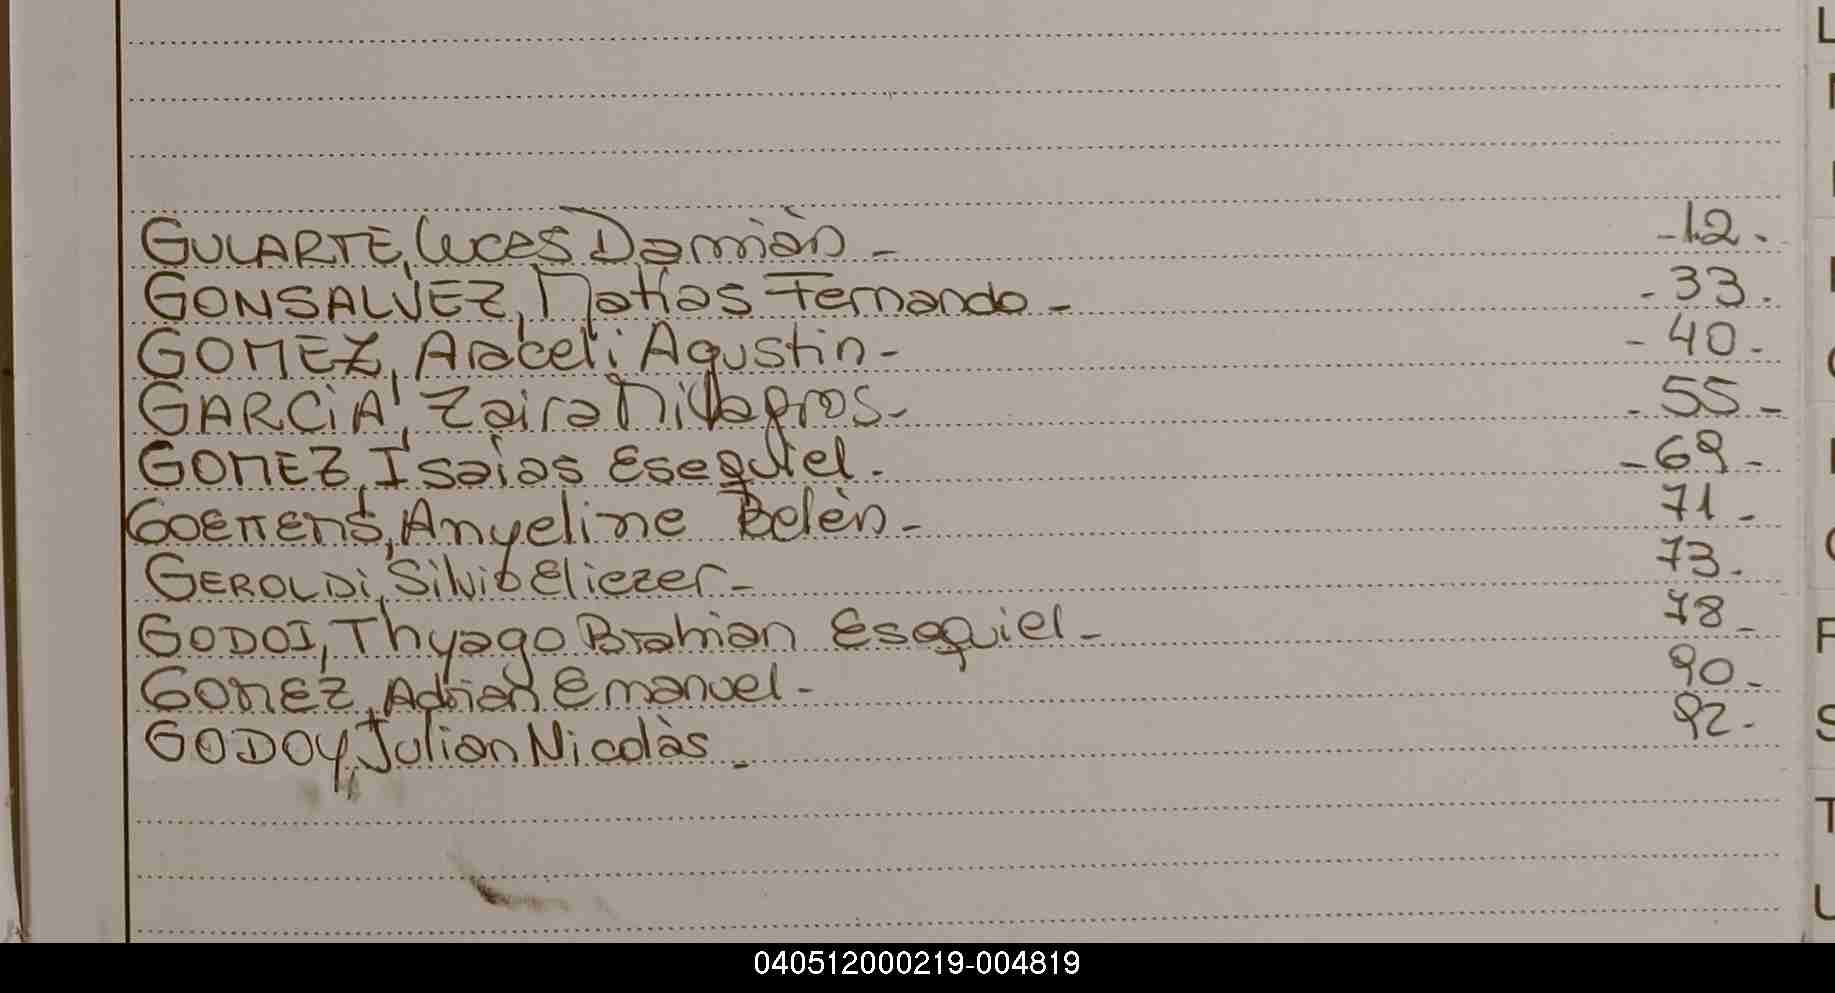 GULARTE, Lucas Damiàn - - 12 .
GONSALVEZ, Matías Fernando - - 33 .
GOMEZ, Araceli Agustin - - 40 -
GARCiA, Zaira Milagros - - 55 -
GOMEZ, Isaias Esequiel - - 69 -
GOEMENS, Anyeline Belèn - 71 -
GEROLDi, Silvio Eliezer - 73 .
GODOI, Thyago Brahian Esequiel - 78 -
GOMEZ, Adrian Emanuel - 90 -
GODOY, Julian Nicolàs - 92 -
040512000219-004819